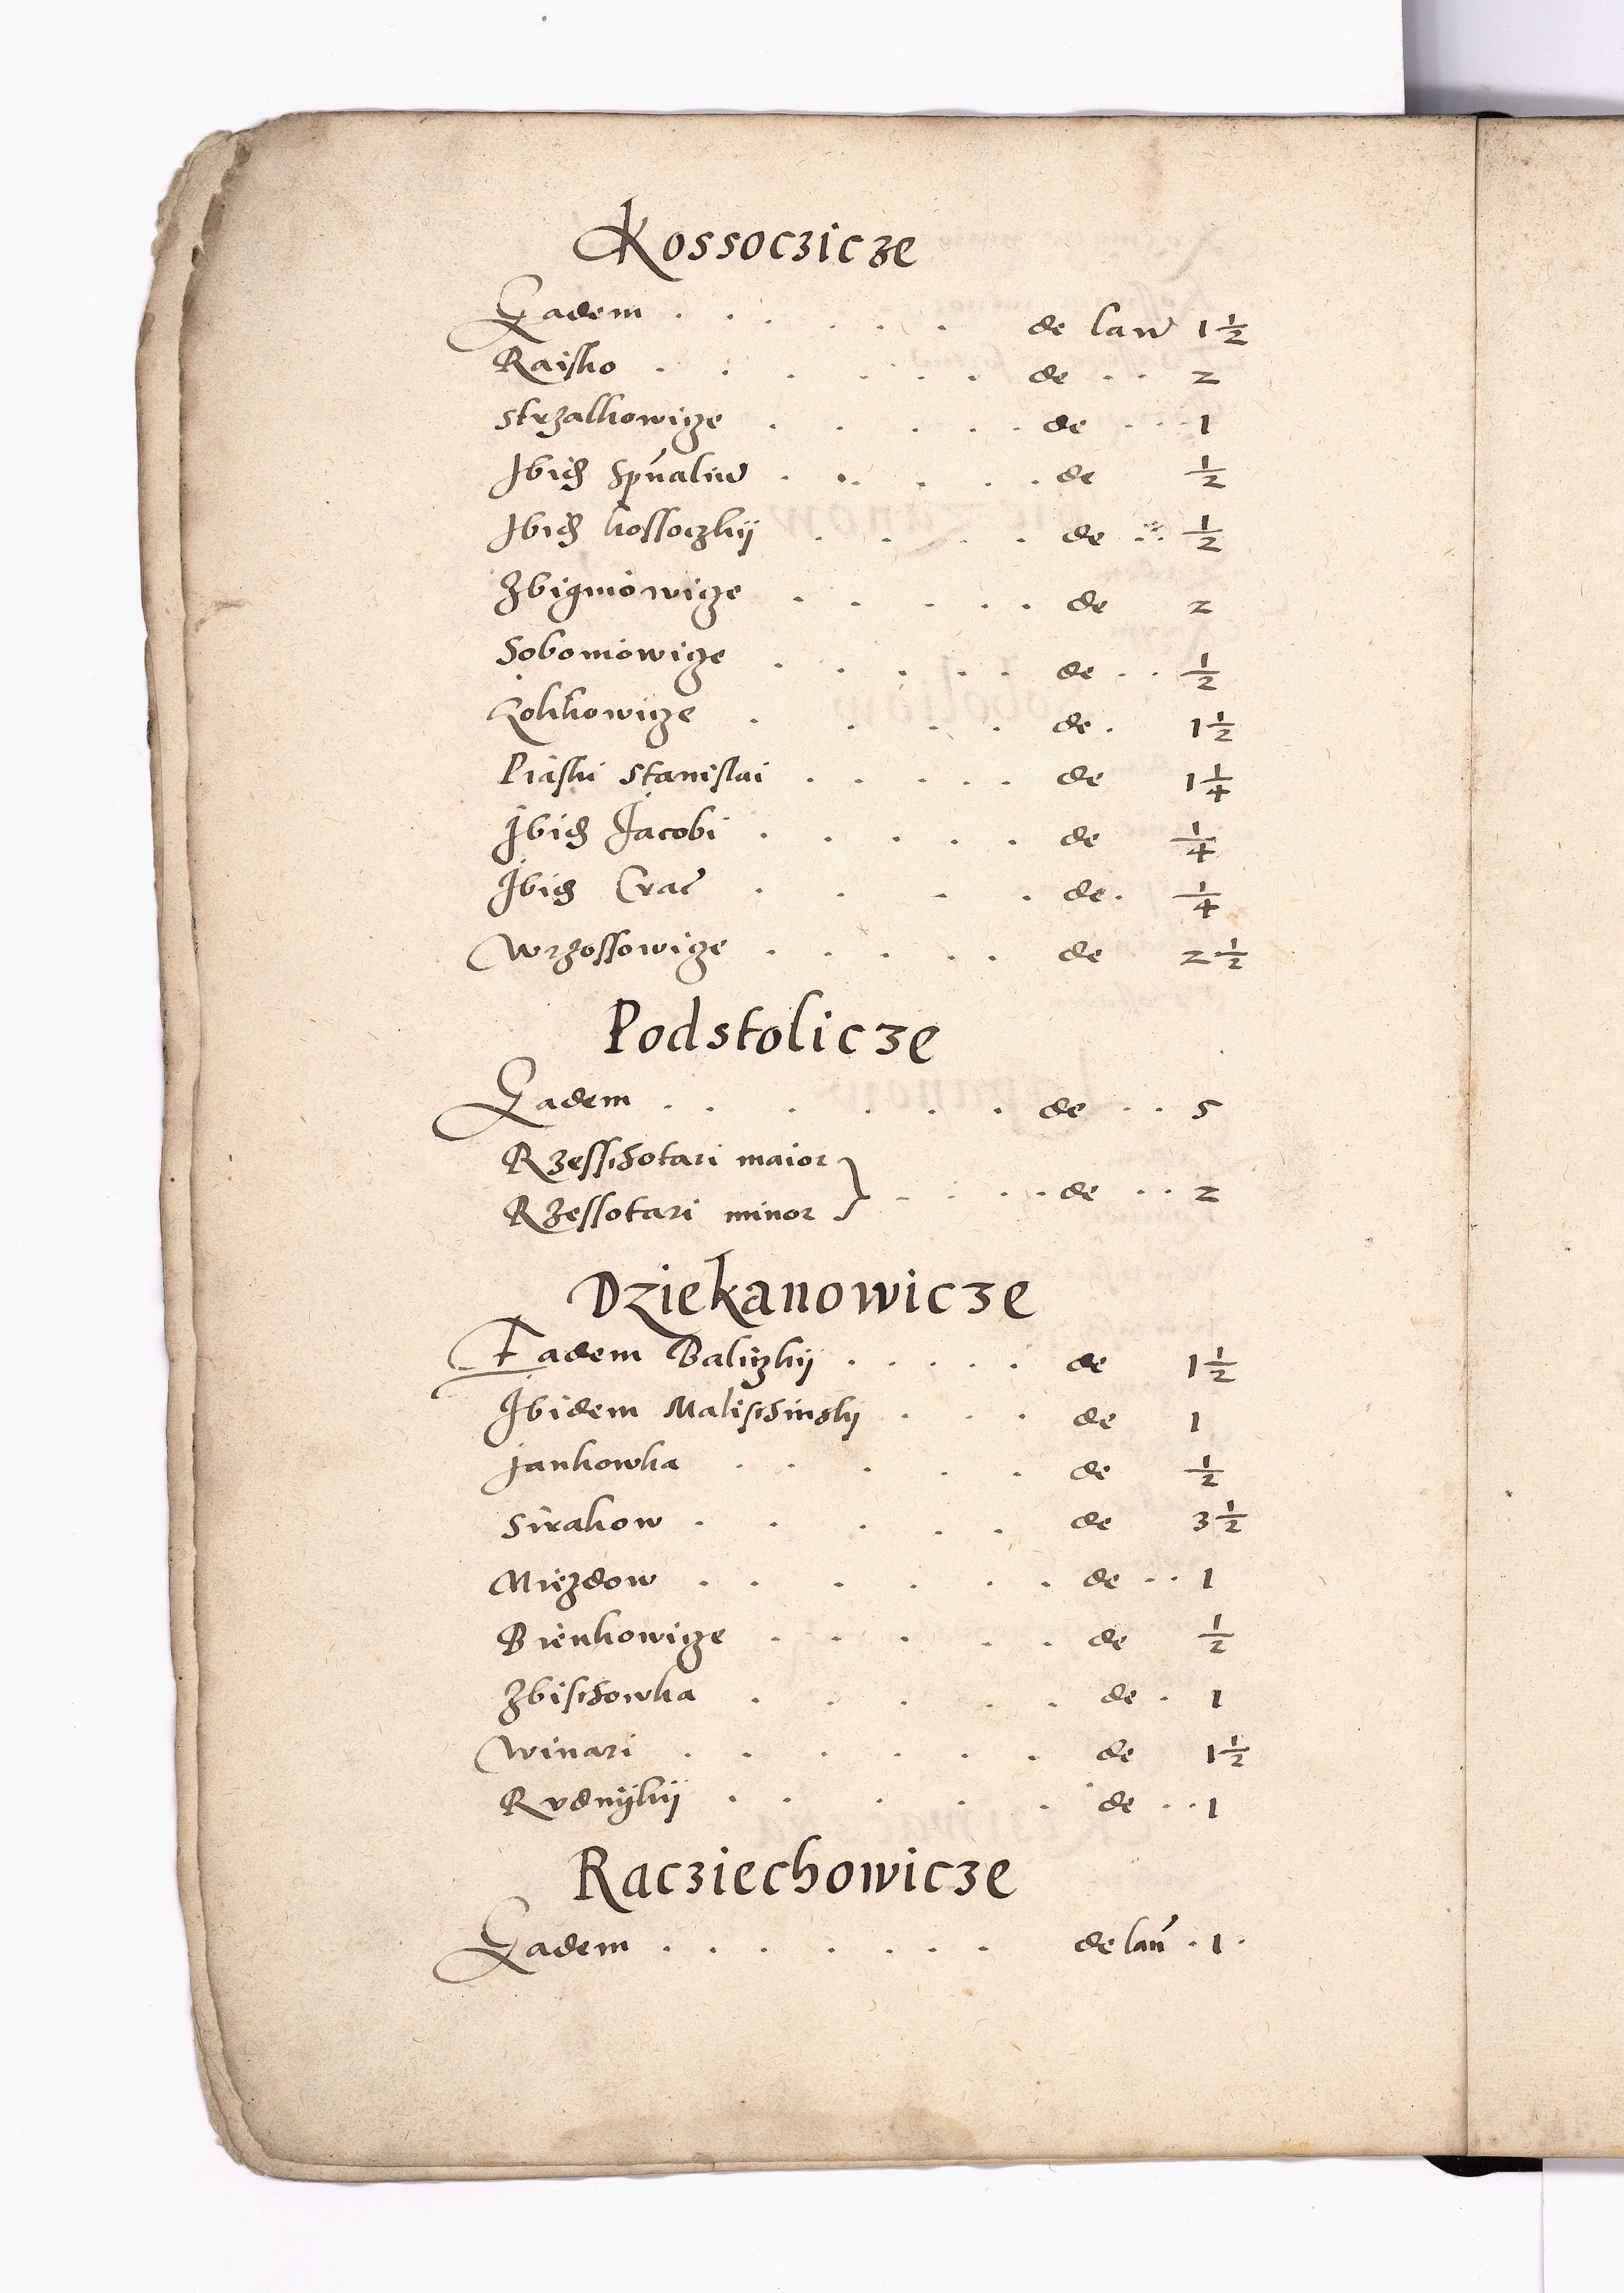 Kossoczicze
Eadem . . . . . . . de lan̄ 1 1/2
Raisko . . . . . . de . . 2
Strzalkowicze . . . . . de . . . 1
Ibid Sp̄ualiu̅ . . . . . de 1/2
Ibid kossoczkij . . . . de . . . 1/2
Zbigniowicze . . . . . de 2
Soboniowicze . . . . . de . . 1/2
Lokkowicze . . . . de . 1 1/2
Piaski Stanislai . . . . . de 1 1/4
Ibid Jacobi . . . . . de 1/4
Ibid Crac̄ . . . . de . 1/4
Wrzossowicze . . . . . de 2 1/2
Podstolicze
Eadem . . . . . . de . . . 5
Rzesschotari maior
Rzessotari minor } . . . . de . . . 2
Dziekanowicze
Eadem Baliczkij . . . . . de 1 1/2
Ibidem Malischinsky . . . de 1
Jankowka . . . . . de 1/2
Sirakow . . . . . de 3 1/2
Niezdow . . . . . . de . . . 1
Bienkowicze . . . . . de 1/2
Zbischowka . . . . . de . 1
Winari . . . . . . de 1 1/2
Rudnijkij . . . . . de . . . 1
Racziechowicze
Eadem . . . . . . . de lan̄ . 1 .